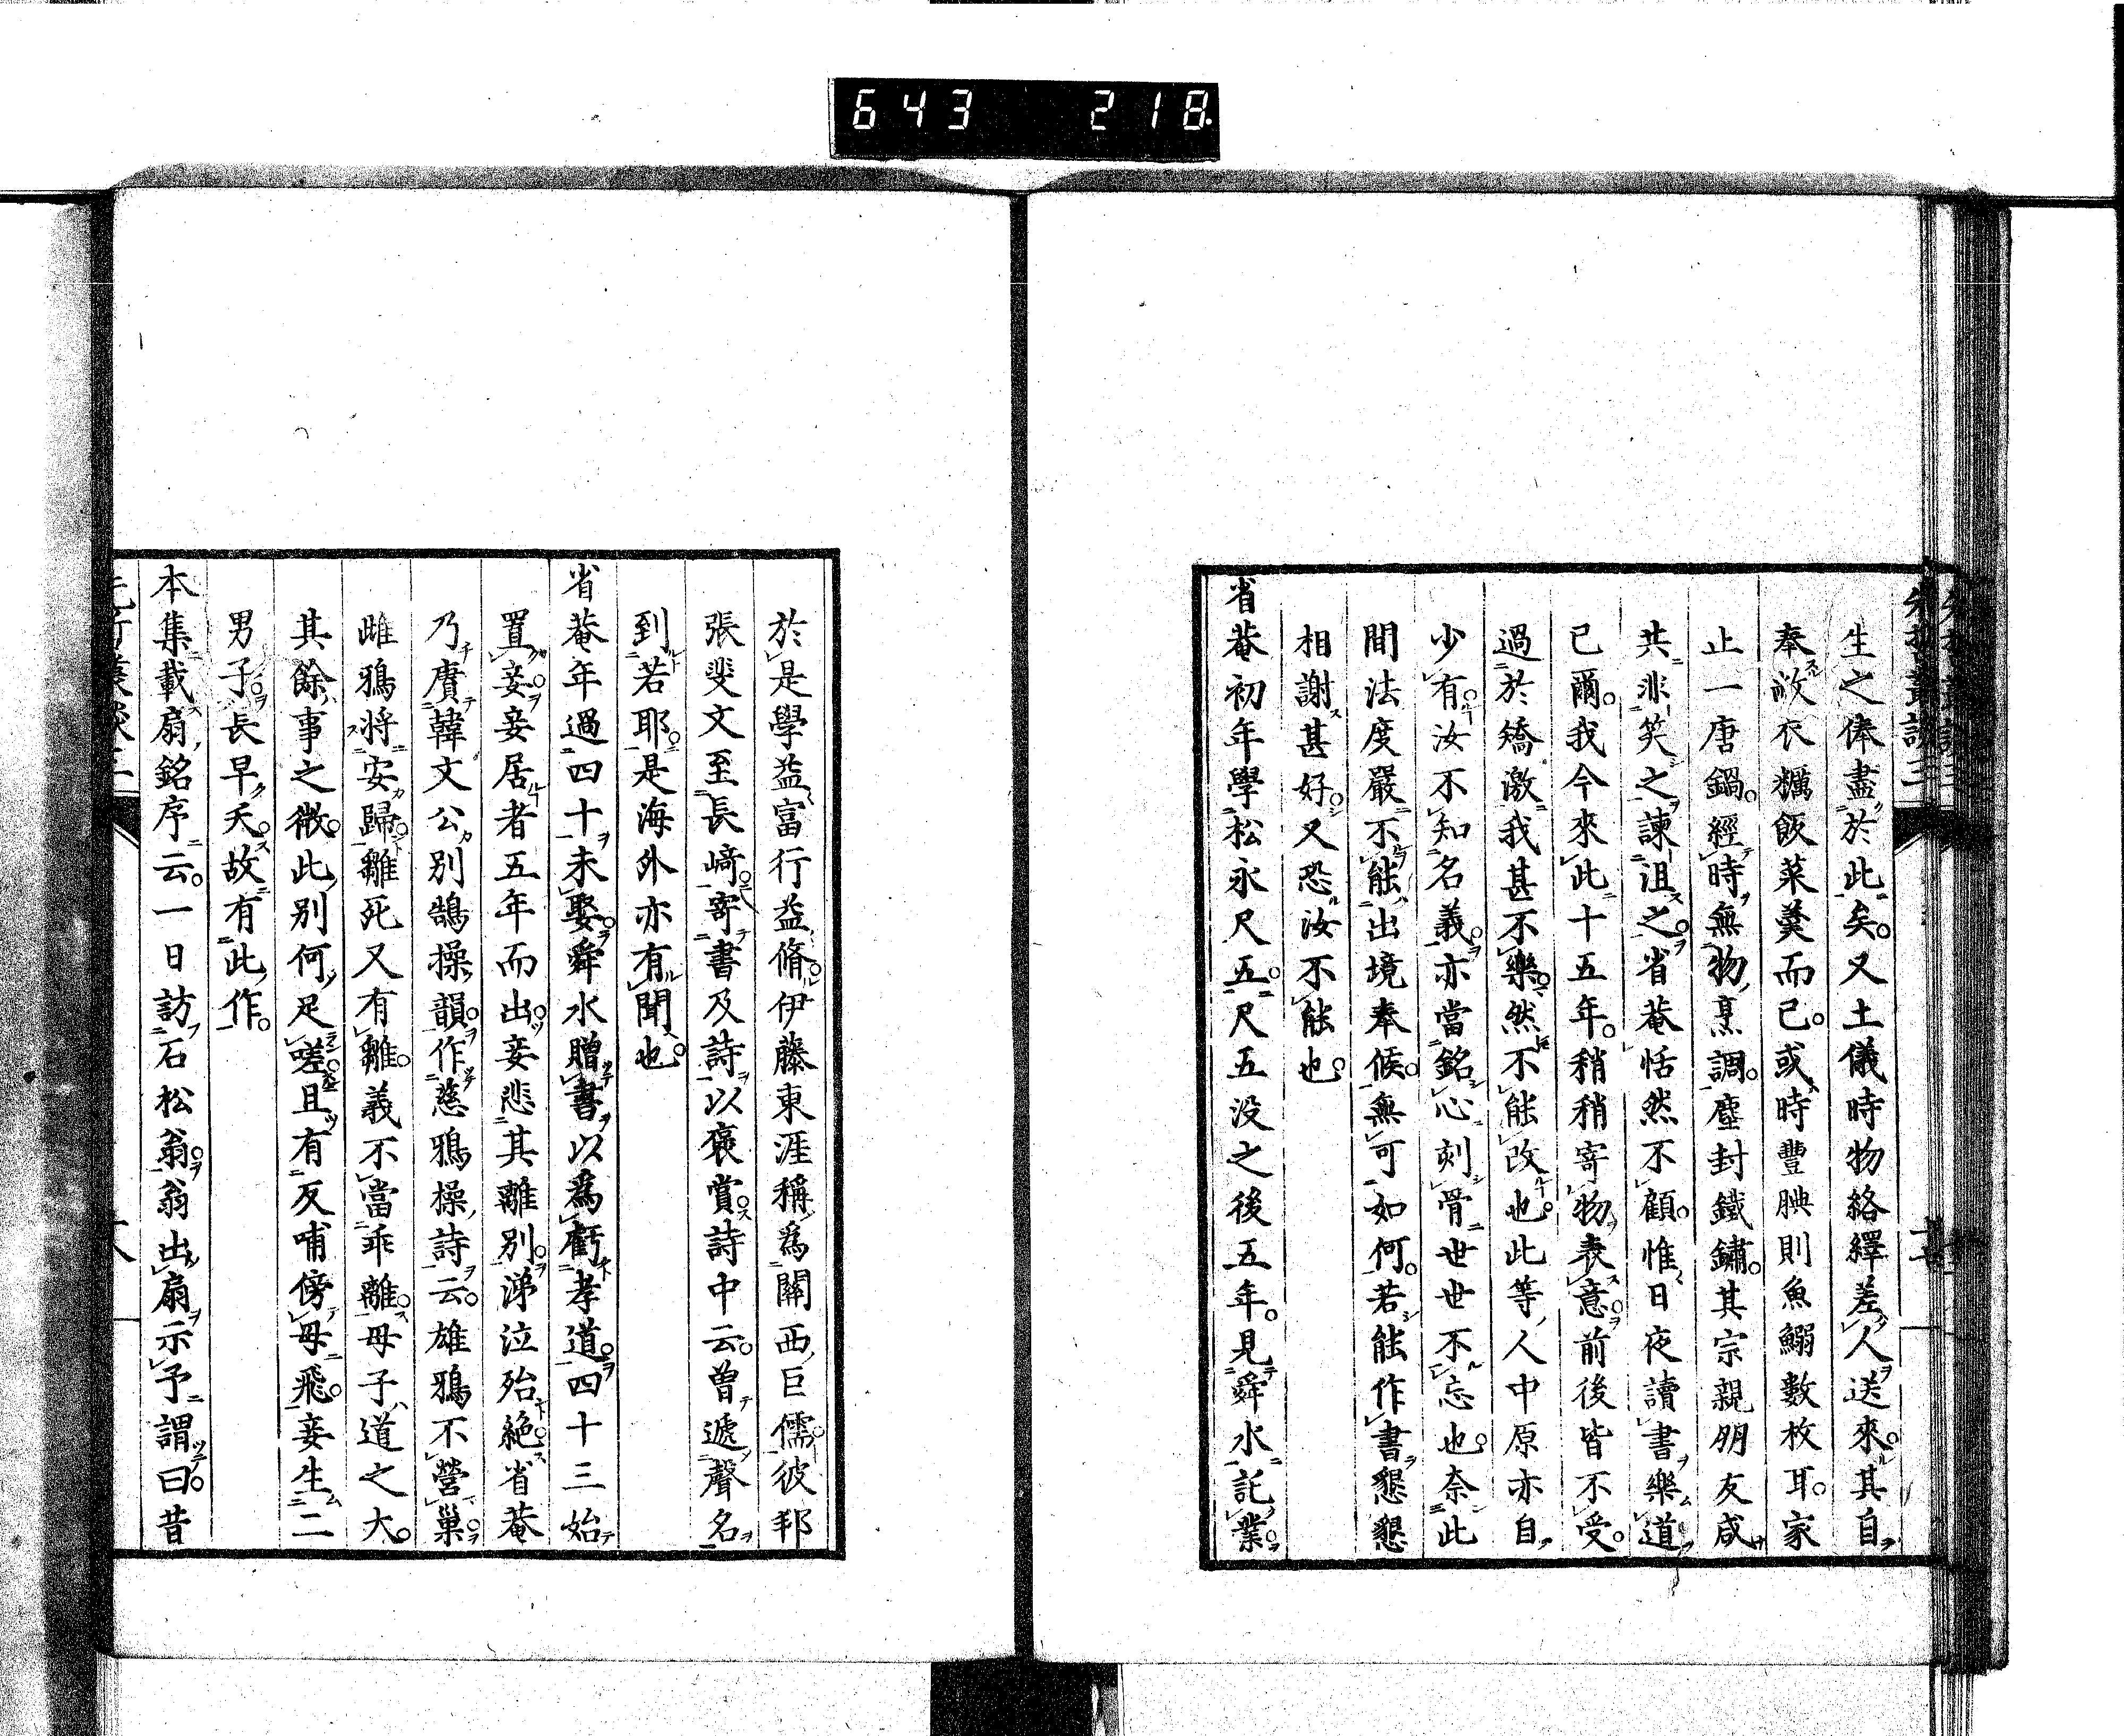 643 218.
生之俸盡於此矣。又土儀時物絡繹差人送來。其自
奉敝衣糲飯菜羹而已。或時豐腆則魚鰯數枚耳。家
止一唐鍋。經時無物烹調。塵封鐵鏽。其宗親朋友咸
共非笑之諫沮之。省菴恬然不顧。惟日夜讀書樂道
已爾。我今來此十五年。稍稍寄物表意。前後皆不受。
過於矯激。我甚不樂。然不能改也。此等人中原亦自
少有。汝不知名義。亦當銘心刻骨世世不忘也。奈此
間法度嚴。不能出境奉候。無可如何。若能作書懇懇
相謝甚好。又恐汝不能也。
省菴初年學松永尺五。尺五没之後五年。見舜水託業。
於是學益富行益脩。伊藤東涯稱為關西巨儒。彼邦
張斐文至長﨑。寄書及詩以褒賞。詩中云。曽遞聲名
到若耶。是海外亦有聞也。
省菴年過四十未娶。舜水贈書以為虧孝道。四十三始
置妾。妾居者五年而出。妾悲其離別。涕泣殆絶。省菴
乃賡韓文公別鵠操韻。作慈鴉操。詩云。雄鴉不營巢。
雌鴉将安歸。雛死又有雛。義不當乖離。母子道之大。
其餘事之微。此別何足嗟。且有反哺傍母飛。妾生二
男子。長早夭。故有此作。
本集載扇銘序云。一日訪石松翁。翁出扇示予謂曰。昔